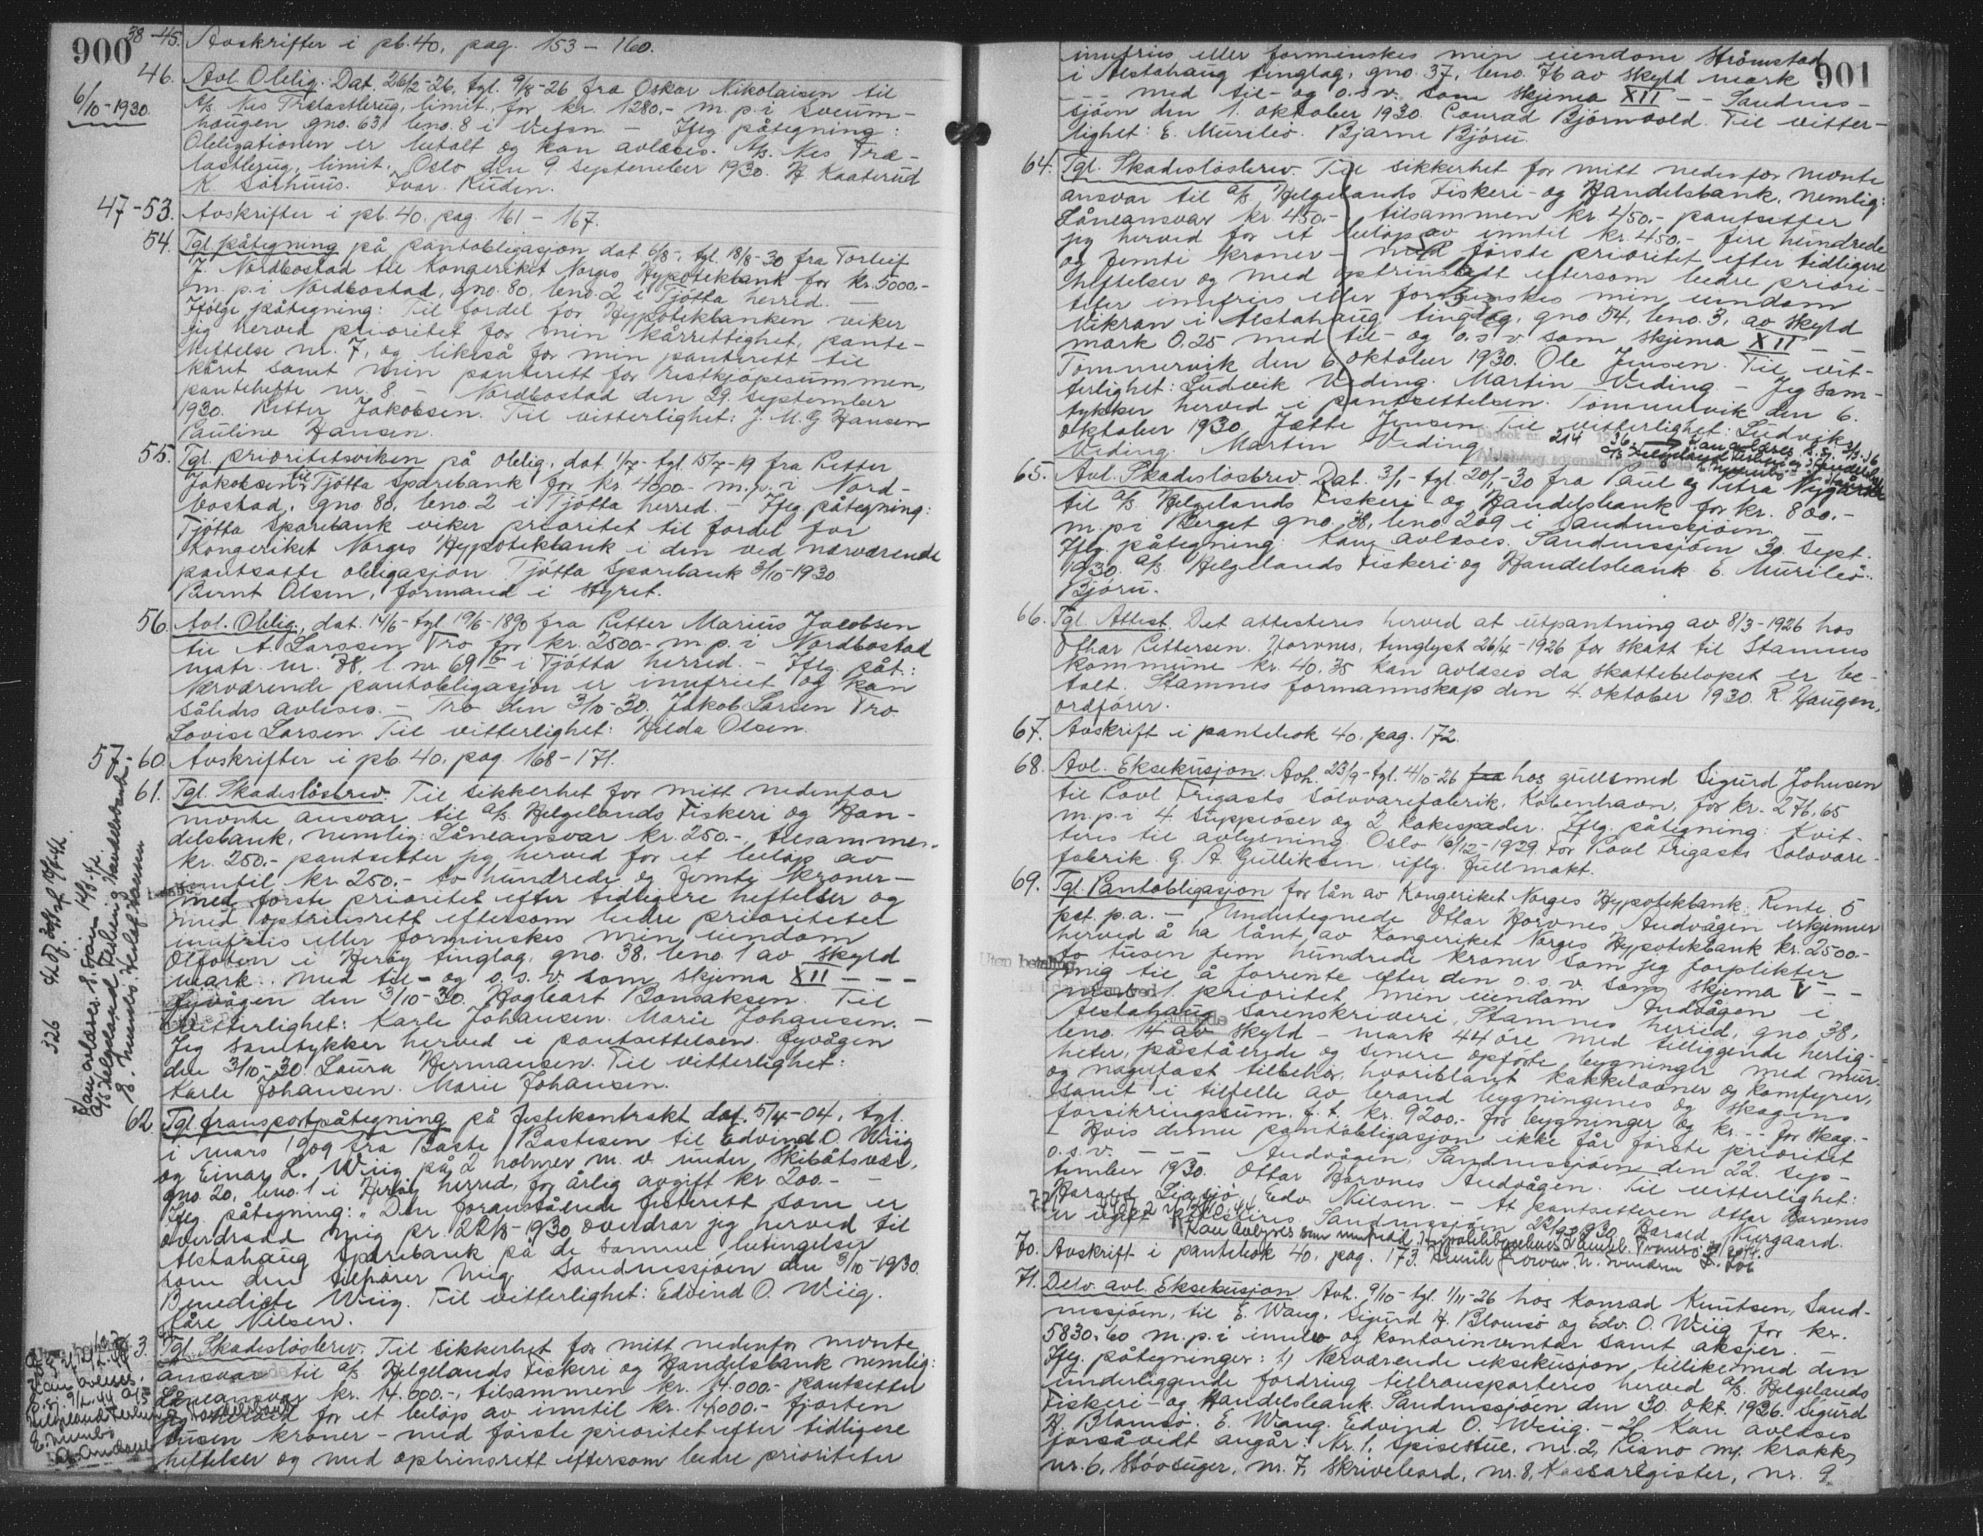 900
38-45. Avskrifter i pb. 40, pag. 153 - 160.
46. Avl. Oblig. Dat. 26/2-26, tgl. 9/8-26 fra Oskar Nikolaisen til
6/10-1930
A/s Nes Trælastbrug, limit, for kr. 1280.- m.p.i Sveum-
haugen gno. 63, bno. 8 i Vefsn. - Iflg påtegning:
Obligationen er betalt og kan avlæses. A/s. Nes Træ-
lastbrug, limit. Oslo den 9 September 1930. H Kaaterud
K. Sørhuus. Ivar Ruden.
47-53. Avskrifter i pb. 40. pag. 161 - 167.
54. Tgl. påtegning på pantobligasjon dat 6/8-, tgl. 18/8-30 fra Torleif
J. Nordbostad til Kongeriket Norges Hypotekbank for kr. 5000.-
m.p.i Nordbostad, gno. 80, bno. 2 i Tjøtta herred. -
Ifølge påtegning: Til fordel for Hypotekbanken viker
jeg herved prioritet for min kårrettighet, pante-
heftelse nr. 7, og likeså for min panterett til
kåret samt min panterett for restkjøpesummen,
pantehefte nr. 8 - Nordbostad den 29. september
1930. Petter Jakobsen. Til vitterlighet: J. M. G Hansen
Pauline Hansen.
55. Tgl. prioritetsviken på oblig. dat 1/7- tgl. 15/7-19 fra Petter
Jakobsen til Tjøtta Sparebank for kr 4000.- m.p.i Nord-
bostad, gno. 80, bno. 2 i Tjøtta herred. - Ifлg påtegning:
Tjøtta Sparebank viker prioritet til fordel for
Kongeriket Norges Hypotekbank i den ved nærværende
pantsatte obligasjon Tjøtta Sparebank 3/10-1930
Bernt Olsen, formand i Styret.
56. Avl. Oblig., dat. 14/6- tgl 19/6-1890 fra Petter Marius Jacobsen
til A Larssen Tro for kr. 2500.- m.p.i Nordbostad
matr. nr. 78, l. nr. 69 b i Tjøtta herred. - Ifлg. påt.:
Nærværende pantobligasjon er innfriet og kan
således avleses. - Tro den 3/10-30. Jakob Larsen Tro
Lovise Larsen. Til vitterlighet: Hilda Olsen.
57-60. Avskrifter i pb. 40, pag 168 - 171.
61. Tgl. Skadesløsbrev. Til sikkerhet for mitt nedenfor
nevnte ansvar til A/s Helgelands Fiskeri og Han-
delsbank, nemlig: Låneansvar kr. 250.-, tilsammen
kr. 250.- pantsetter jeg herved for et beløp av
inntil kr 250.- to hundrede og femti kroner -
med første prioritet efter tidligere heftelser og
med optrinsrett eftersom bedre prioriteter
innfries eller forminskes min eiendom
i Herøy tinglag, gno. 38, bno. 1 av skyld
mark.. med til- og o.s.v. som skjema XII - -
den 3/10-30. Hagbart Bonsaksen. Til
vitterlighet: Karle Johansen. Marie Johansen. -
Jeg samtykker herved i pantsettelsen.
den 3/10-30. Laura Hermansen. Til vitterlighet:
Karle Johansen. Marie Johansen.
62 Tgl. transportpåtegning på festekontrakt dat. 5/4-04, tgl.
i mars 1909 fra Baste Bastesen til Edvind O. Wiig
og Einar L. Wiig på 2 holmer m. v. under Skibåtsvær,
gno. 20, bno. 1 i Herøy herred, for årlig avgift kr 200.-
Ifлg påtegning: "Den foranstående festerett som er
overdradd mig pr. 22/8-1930 overdrar jeg herved til
Alstahaug Sparebank på de samme betingelser
som den tilhører mig Sandnessjøen den 3/10-1930.
Benedicte Wiig. Til vitterlighet: Edvind O. Wiig.
Kåre Nilsen.
63. Tgl. Skadesløsbrev. Til sikkerhet for mitt nedenfor nevnte
ansvar til A/s Helgelands Fiskeri og Handelsbank nemlig:
Låneansvar kr. 14.000.-, tilsammen kr. 14.000.- pantsetter
jeg herved for et beløp av inntil kr. 14000.- fjorten
tusen kroner - med første prioritet efter tidligere
heftelser og med optrinsrett eftersom bedre prioriteter
901
innfries eller forminskes min eiendom Strømstad
i Alstahaug tinglag, gno. 37, bno. 76 av skyld mark
- - - med til- og o.s.v. som skjema XII - - Sandnes-
sjøen den 1. oktober 1930. Conrad Bjørnvold. Til vitter-
lighet: E. Murilsø. Bjarne Bjøru.
64. Tgl. Skadesløsbrev. Til sikkerhet for mitt nedenfor nevnte
ansvar til A/s Helgelands Fiskeri- og Handelsbank, nemlig:
Låneansvar kr. 450.- tilsammen kr. 450.- pantsetter
jeg herved for et beløp av inntil kr. 450.- fire hundrede
og femti kroner - med første prioritet efter tidligere
heftelser og med optrinsrett eftersom bedre priori-
teter innfries eller forminskes min eiendom
Vikran i Alstahaug tinglag, gno 54, bno. 3, av skyld
mark 0.25 med til- og o.s.v. som skjema XII - -
Tømmervik den 6. oktober 1930. Ole Jensen. Til vit-
terlighet: Ludvik Veding. Martin Veding - Jeg sam-
tykker herved i pantsettelsen. Tømmervik den 6.
oktober 1930. Jette Jensen Til vitterlighet: Ludvik
Veding. Martin Veding
Dagbok nr. 214 36
65. Avl. Skadesløsbrev. Dat. 3/1- tgl. 20/1-30 fra Paul og Petra Nygård
til A/s Helgelands Fiskeri- og Handelsbank for kr. 800.-
m.p.i Berget gno. 38, bno 209 i Sandnessjøen
Ifлg. påtegning: Kan avleses. Sandnessjøen 30 sept.
1930. A/s. Helgelands Fiskeri og Handelsbank. E. Murilsø.
Bjøru.
66. Tgl. Attest. Det attesteres herved at utpantning av 8/3-1926 hos
Othar Pettersen. Horvnes, tinglyst 26/4-1926 for skatt til Stamnes
kommune kr. 40.35 kan avleses da skattebeløpet er be-
talt. Stamnes formannskap den 4. oktober 1930. R. Haugen,
ordfører.
67. Avskrift i pantebok 40, pag. 172.
68. Avl. Eksekusjon. Avh. 23/9- tgl. 4/10-26 hos gullsmed Sigurd Johnsen
til Povl Frigasts Sølvvarefabrik, København, for kr. 276,65
m.p.i 4 suppeøser og 2 kakespader. Ifлg. påtegning: Kvit-
teres til avlysning Oslo 16/12-1929 for Povl Frigasts Sølvvare-
fabrik. G. A. Gulliksen iflg. fullmakt.
69. Tgl. Pantobligasjon for lån av Kongeriket Norges Hypotekbank. Rente 5
pct. p.a. - Undertegnede Ottar Horvnes, Andvågen erkjenner
herved å ha lånt av Kongeriket Norges Hypotekbank kr. 2500.-
to tusen fem hundrede kroner som jeg forplikter
mig til å forrente efter den o.s.v. som skjema V - -
med 1. prioritet min eiendom Andvågen i
Alstahaug Sorenskriveri, Stamnes herred, gno. 38,
bno. 14 av skyld - mark 44 øre med tilliggende herlig-
heter, påstående og senere opførte bygninger med mur-
og nagelfast tilbehør, hvoriblandt kakkelovner og komfyrer,
samt i tilfelle av brand bygningenes og skogens
forsikringssum. f. t. kr. 9200.- for bygninger og kr. - - for skog.-
- Hvis denne pantobligasjon ikke får første prioritet
o.s.v. - - - Andvågen, Sandnessjøen den 22. sep-
tember 1930. Ottar Horvnes Andvågen. Til vitterlighet:
Edv. Nilsen. - At pantsetteren Ottar Horvnes
er Sandnessjøen 22/9 1930 Harald Kurgaard.
70. Avskrift i pantebok 40, pag. 173.
71. Delv. avl. Eksekusjon. Avh. 9/10- tgl. 1/11-26 hos Konrad Knutsen, Sand-
nessjøen, til E. Wang, Sigurd H. Blomsø og Edv. O. Wiig for kr.
5830.60 m.p.i innbo og kontorinventar samt aksjer. -
Ifлg. påtegninger: 1) Nærværende eksekusjon tillikemed den
underliggende fordring tiltransporteres herved A/s. Helgelands
Fiskeri- og Handelsbank Sandnessjøen den 30. okt. 1926. Sigurd
H. Blomsø. E. Wang. Edvind O. Wiig. - 2) Kan avleses
forsåvidt angår: Nr. 1, spisestue, nr. 2, Piano m/ krakk,
nr. 6, Støvsuger, nr. 7, skrivebord, nr. 8, Kassaregister, nr. 9